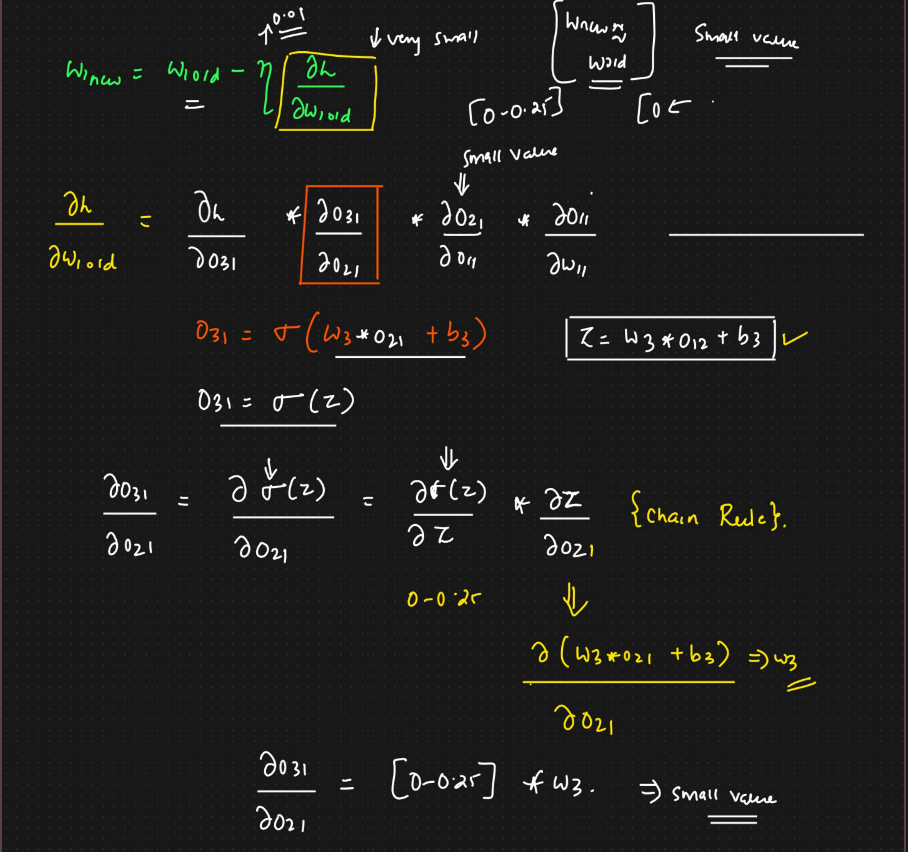 0.01
↓ very small
[Wnew ≈ Wold]
Small value
W1new = W1old - η ∂h/∂W1old
[0-0.25] [0 ←
Small value
∂h/∂W1old = ∂h/∂O31 * ∂O31/∂O21 * ∂O21/∂O11 * ∂O11/∂W11
O31 = σ(W3*O21 + b3)
Z = W3*O12 + b3 ✓
O31 = σ(z)
∂O31/∂O21 = ∂σ(z)/∂O21 = ∂σ(z)/∂Z * ∂Z/∂O21 {Chain Rule}.
0-0.25
∂(W3*O21 + b3)/∂O21 ⇒ W3
∂O31/∂O21 = [0-0.25] * W3. ⇒ small value